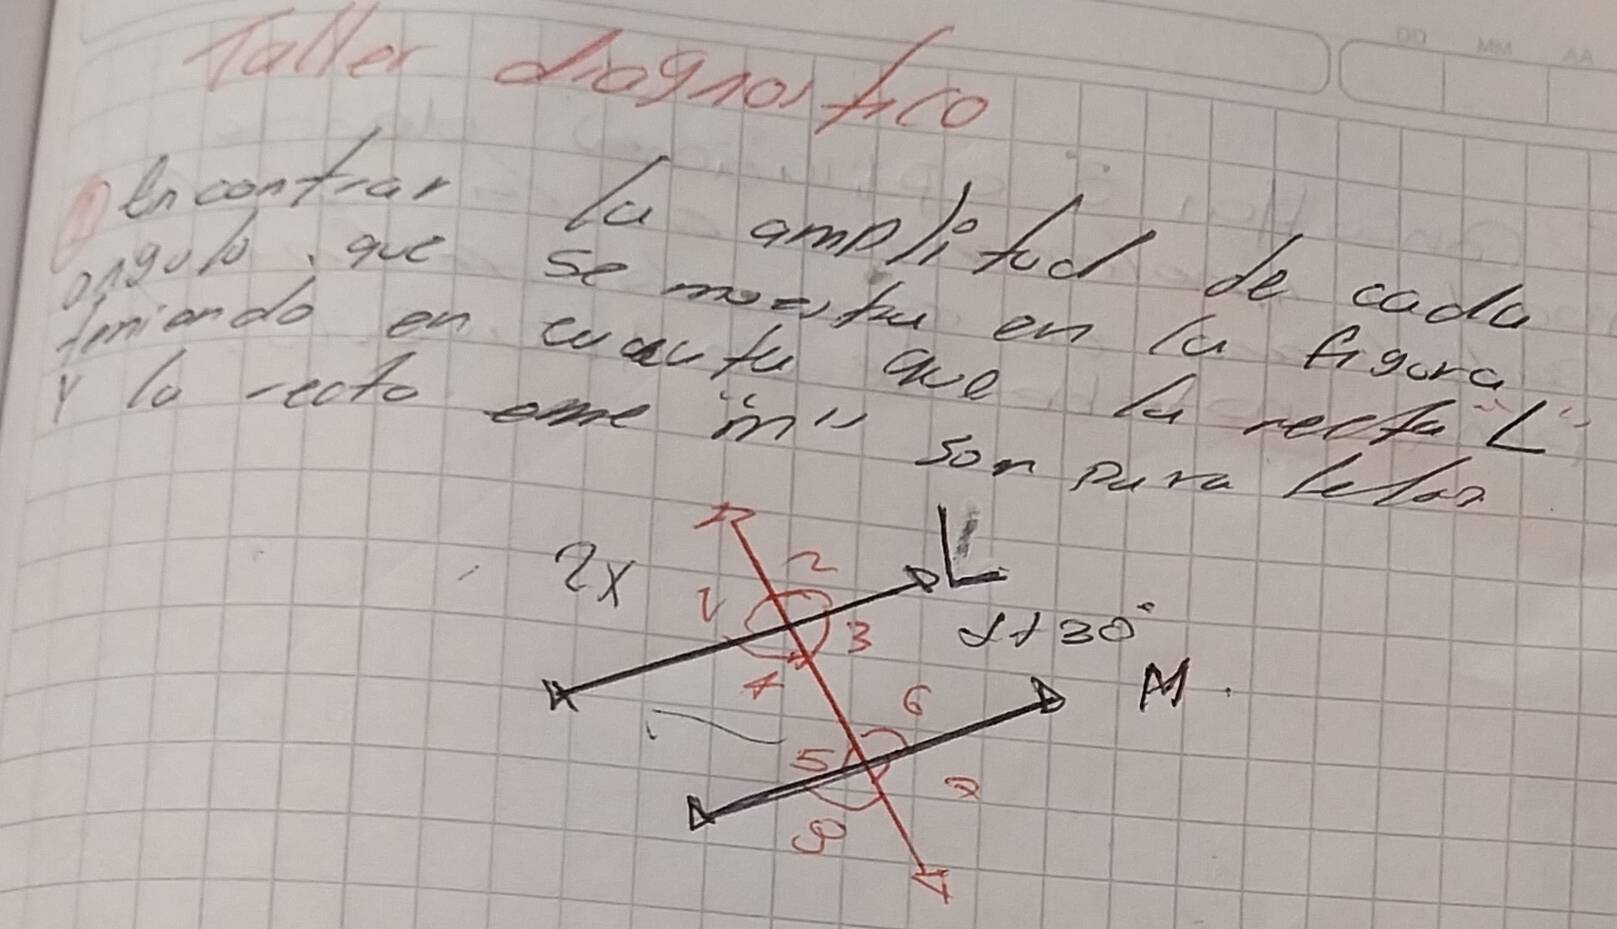 Taller diagnostico
1 Encontrar la amplitud de cada
angulo. que se muestra en la figura
teniendo en cuenta que la recta "L"
Y la recta eme "m" son paralelas
L
2x
2
1
3
x+30°
4
M.
6
5
7
8
DD MM AA